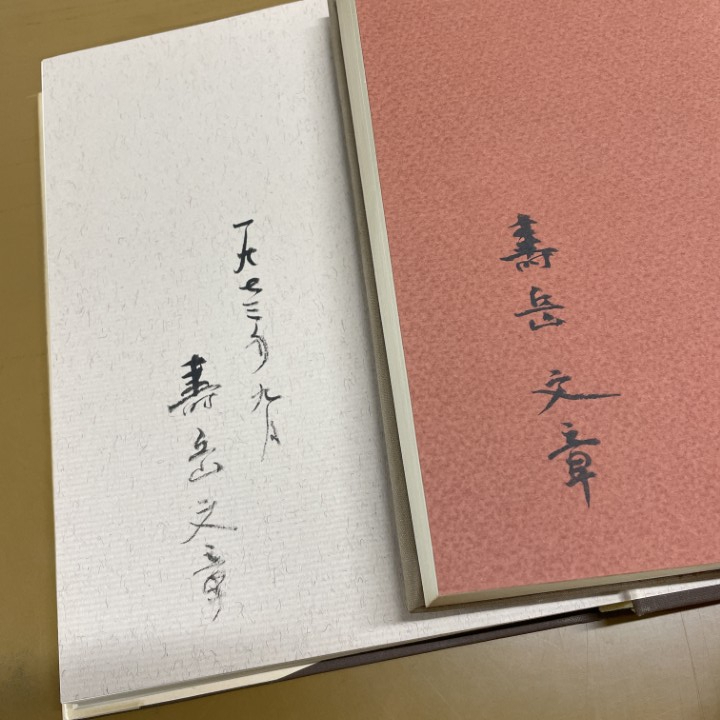 一九七三年九月
壽岳文章
壽岳文章